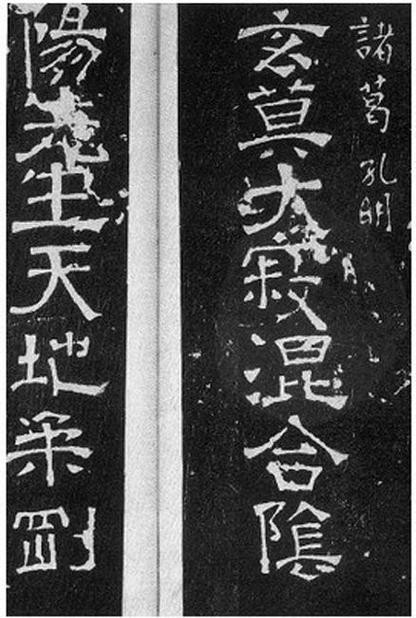 諸葛孔明
玄莫大寂混合陰
陽先生天地柔剛